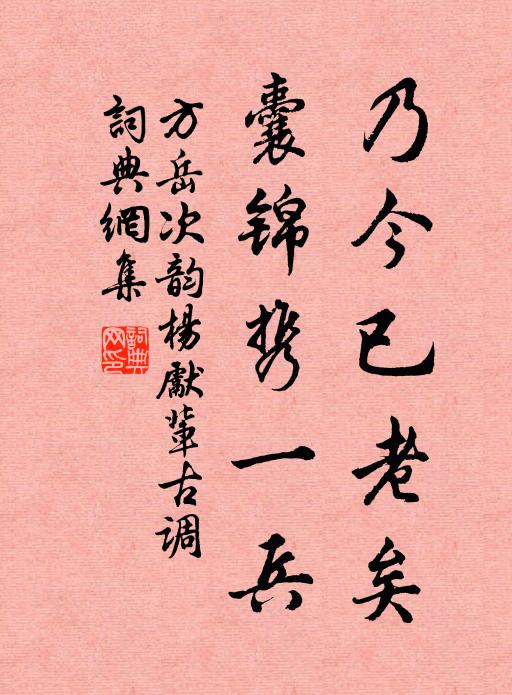 乃今已老矣
囊锦携一兵
方岳次韵楊獻辈古调
詞典網集
詞典网印